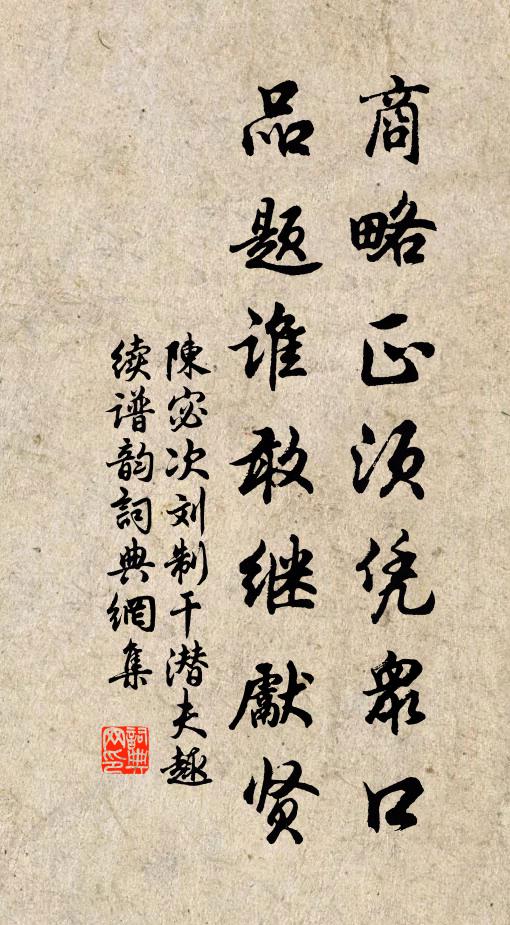 商略正须凭眾口
品题谁敢继獻贤
陳宓次刘制干潜夫趣
续谱韵詞典網集
詞典网印